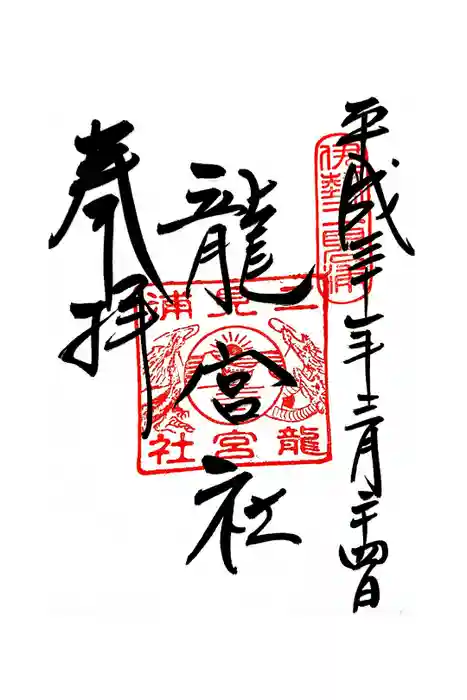 平成三十一年三月二十四日
伊勢二見浦
龍宮社
二見浦
龍宮社
奉拝